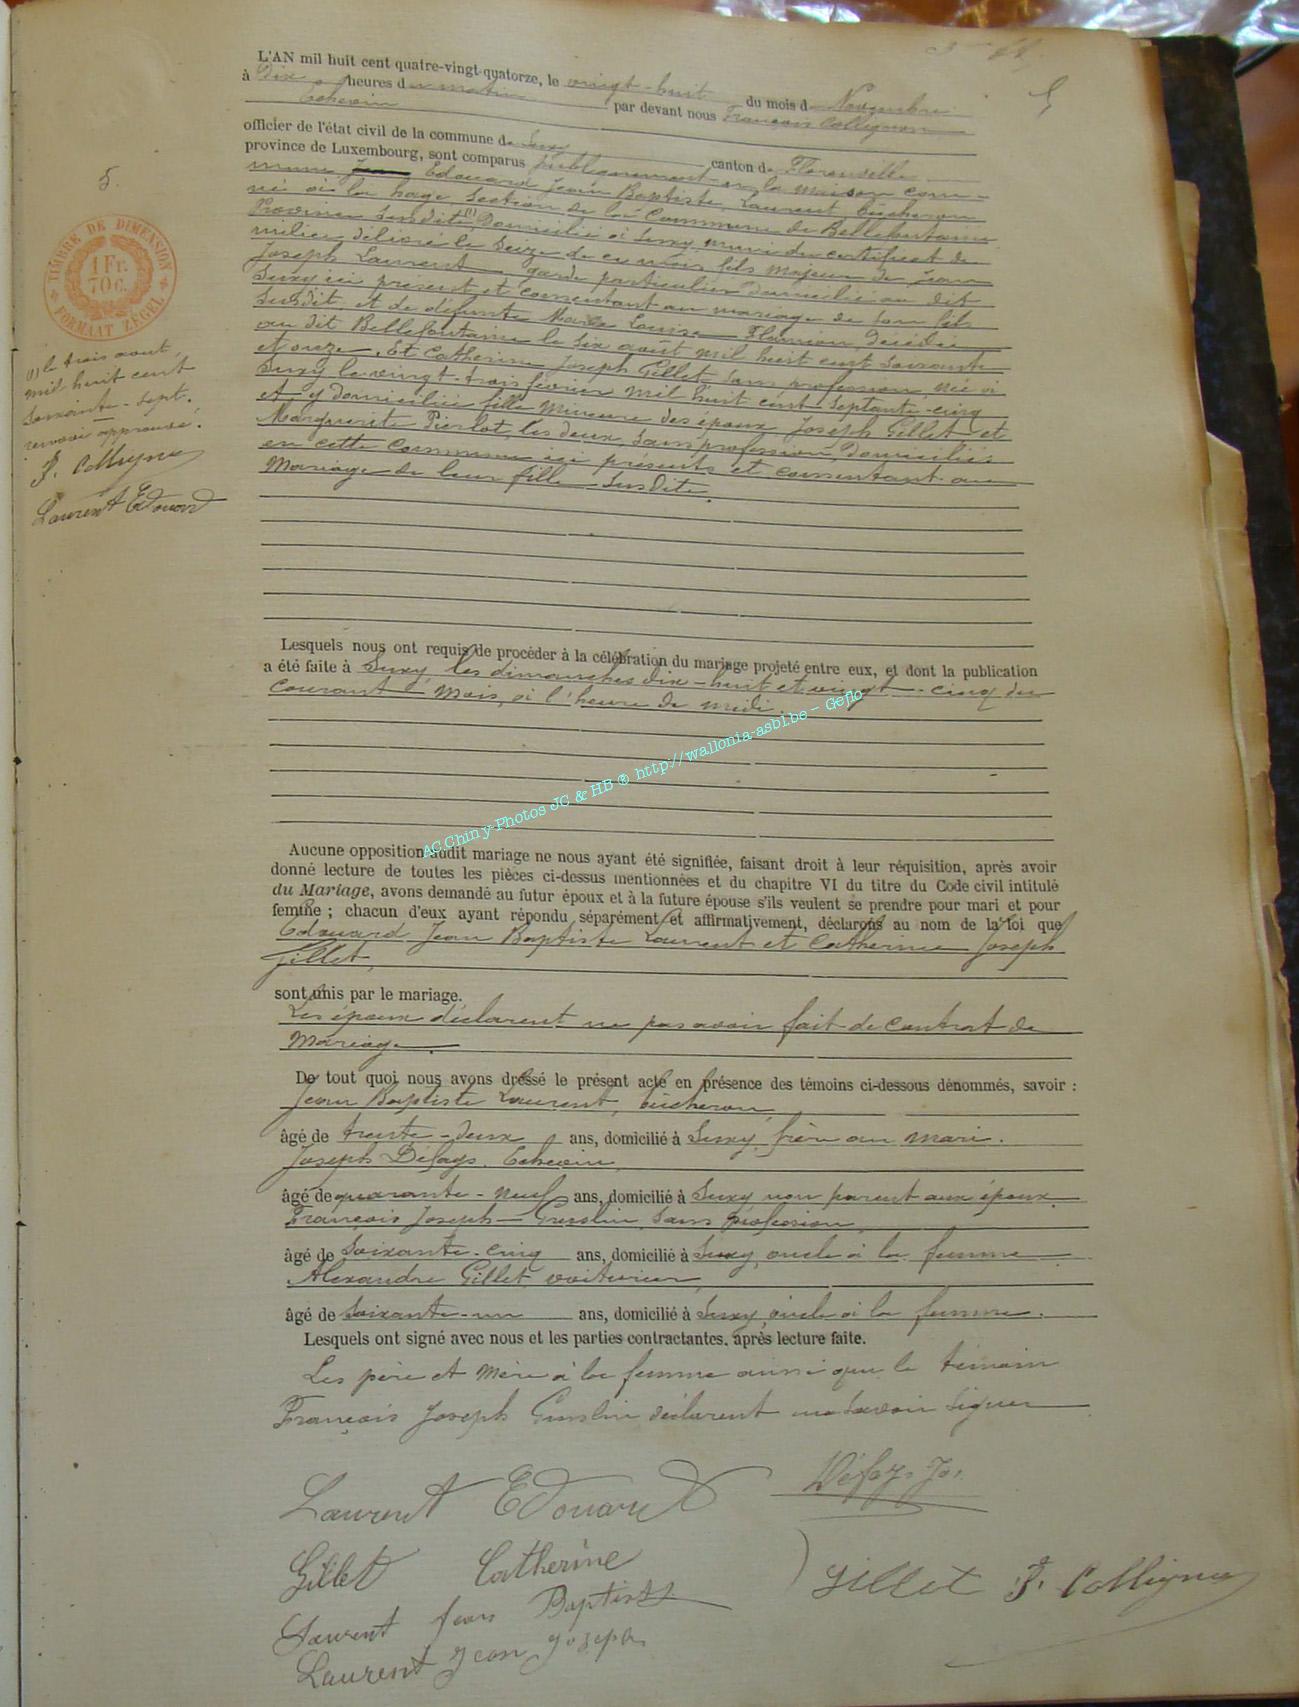 L'AN mil huit cent quatre-vingt-quatorze, le vingt-huit du mois de Novembre
à Dix heures du matin par devant nous François Collignon
Echevin
officier de l'état civil de la commune de Suxy canton de Florenville
province de Luxembourg, sont comparus publiquement en la maison com-
mune Edouard Jean Baptiste Laurent, bûcheron
né à la hage, Section de la Commune de Bellefontaine
Province susdite (1) Domicilié à Suxy muni du certificat de
milice délivré le Seize de ce mois, fils majeur de Jean
Joseph Laurent, garde particulier domicilié au dit
Suxy ici présent et consentant au mariage de son fils
susdit, et de défunte Marie Louise Flamion décédée
au dit Bellefontaine le six août mil huit cent soixante
et onze. Et Catherine Joseph Gillet sans profession, née à
Suxy le vingt-trois février mil huit cent septante-cinq
et y domiciliée fille mineure des époux Joseph Gillet et
Marguerite Pierlot, les deux sans profession, Domiciliés
en cette commune ici présents et consentant au
Mariage de leur fille susdite.
5.
TIMBRE DE DIMENSION
1 Fr.
70 c.
FORMAAT ZEGEL
(1) le trois aout
mil huit cent
soixante-sept.
renvoi approuvé.
F. Collignon
Laurent Edouard
Lesquels nous ont requis de procéder à la célébration du mariage projeté entre eux, et dont la publication
a été faite à Suxy, les dimanches dix-huit et vingt-cinq du
courant mois, à l'heure de midi.
AC Chiny-Photos JC & HB ® http://wallonia-asbl.be - Geflo
Aucune opposition audit mariage ne nous ayant été signifiée, faisant droit à leur réquisition, après avoir
donné lecture de toutes les pièces ci-dessus mentionnées et du chapitre VI du titre du Code civil intitulé
du Mariage, avons demandé au futur époux et à la future épouse s'ils veulent se prendre pour mari et pour
femme ; chacun d'eux ayant répondu séparément et affirmativement, déclarons au nom de la loi que
Edouard Jean Baptiste Laurent et Catherine Joseph
Gillet
sont unis par le mariage.
Les époux déclarent ne pas avoir fait de contrat de
Mariage.
De tout quoi nous avons dressé le présent acte en présence des témoins ci-dessous dénommés, savoir :
Jean Baptiste Laurent, bûcheron,
âgé de trente-deux ans, domicilié à Suxy, frère au mari.
Joseph Defays, Echevin,
âgé de quarante-neuf ans, domicilié à Suxy non parent aux époux
François Joseph Guslin, sans profession,
âgé de soixante-cinq ans, domicilié à Suxy, oncle à la femme
Alexandre Gillet, voiturier,
âgé de Soixante-un ans, domicilié à Suxy, oncle à la femme.
Lesquels ont signé avec nous et les parties contractantes, après lecture faite.
Les père et mère à la femme ainsi que le témoin
François Joseph Guslin déclarent ne savoir signer
Laurent Edouard
Défays Jos.
Gillet Catherine
Gillet F. Collignon
Laurent Jean Baptiste
Laurent Jean Joseph